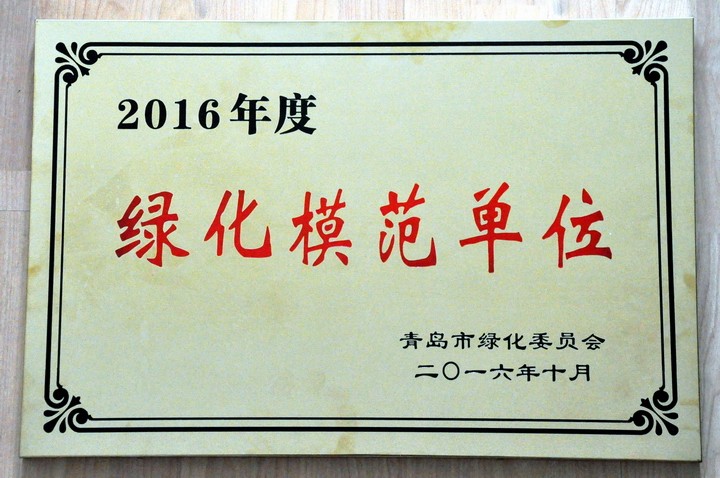 2016年度
绿化模范单位
青岛市绿化委员会
二〇一六年十月